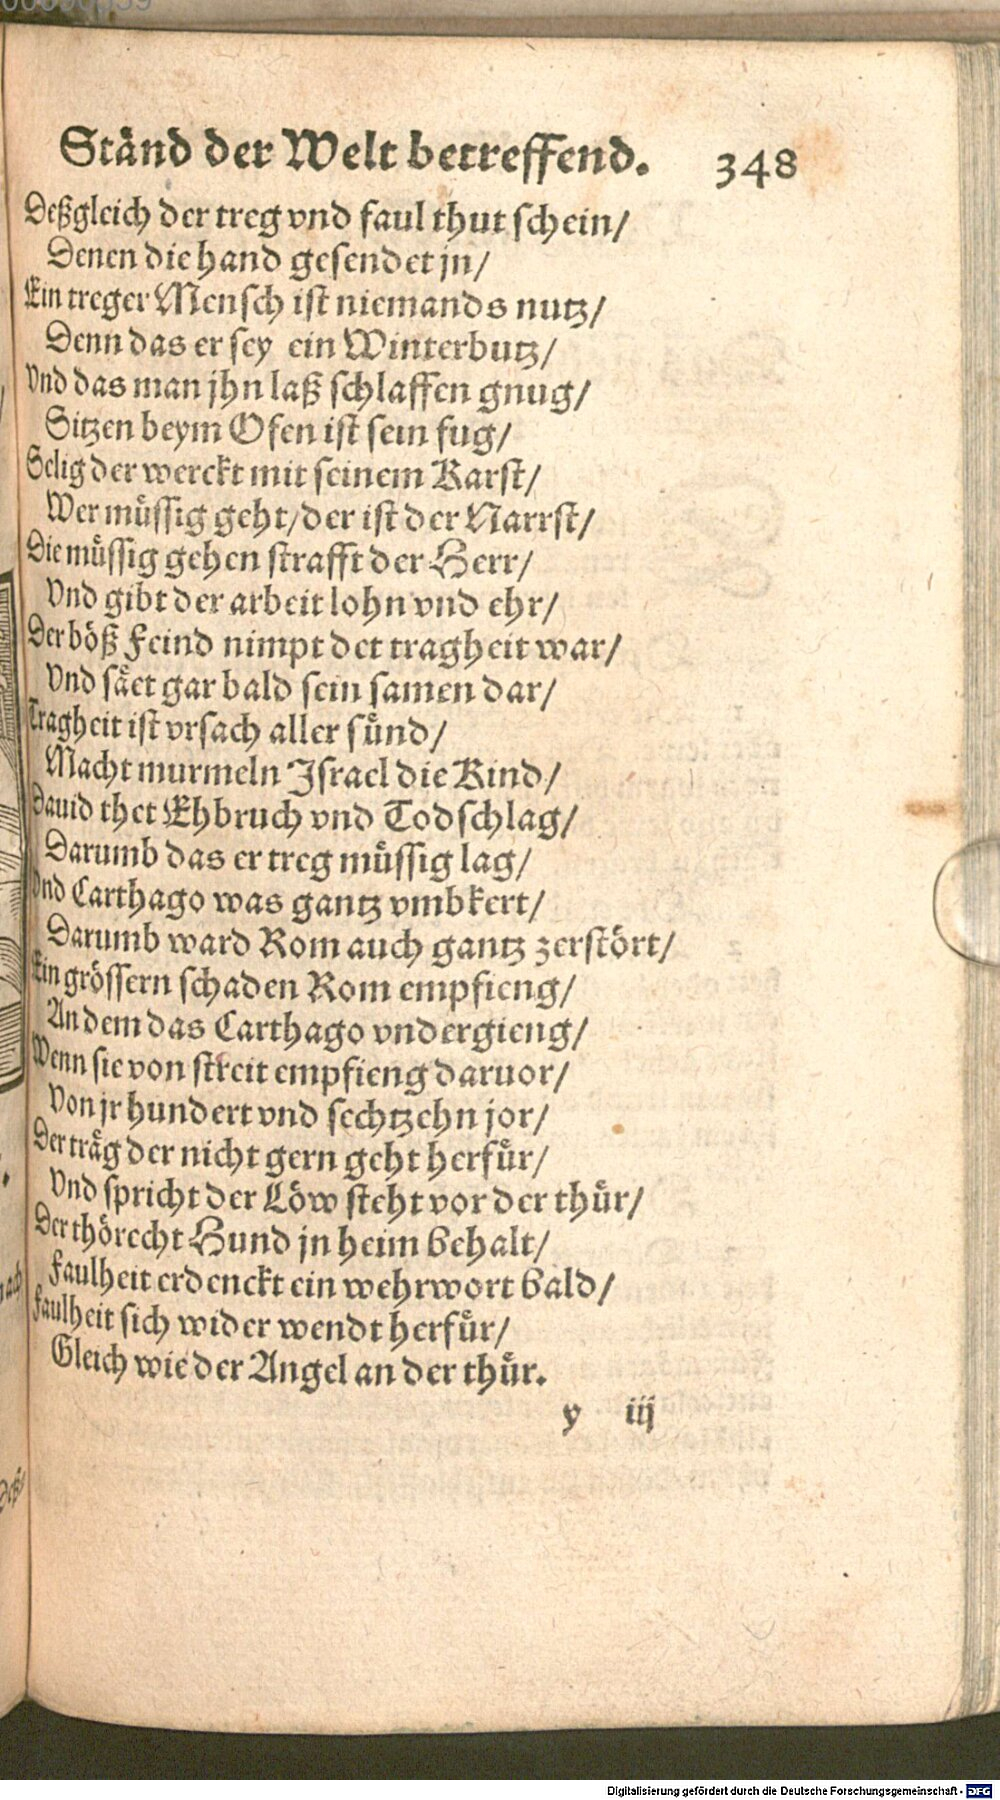 Ständ der Welt betreffend. 348
Deßgleich der treg vnd faul thut schein/
Denen die hand gesendet jn/
Ein treger Mensch ist niemands nutz/
Denn das er sey ein Winterbutz/
Vnd das man jhn laß schlaffen gnug/
Sitzen beym Ofen ist sein fug/
Selig der werckt mit seinem Karst/
Wer müssig geht/der ist der Narrst/
Die müssig gehen strafft der Herr/
Vnd gibt der arbeit lohn vnd ehr/
Der böß Feind nimpt det tragheit war/
Vnd säet gar bald sein samen dar/
Tragheit ist vrsach aller sünd/
Macht murmeln Israel die Kind/
Dauid thet Ehbruch vnd Todschlag/
Darumb das er treg müssig lag/
Vnd Carthago was gantz vmbkert/
Darumb ward Rom auch gantz zerstört/
Ein grössern schaden Rom empfieng/
An dem das Carthago vndergieng/
Wenn sie von streit empfieng daruor/
Von jr hundert vnd sechtzehn jor/
Der träg der nicht gern geht herfür/
Vnd spricht der Löw steht vor der thür/
Der thörecht Hund jn heim behalt/
Faulheit erdenckt ein wehrwort bald/
Faulheit sich wider wendt herfür/
Gleich wie der Angel an der thür.
y iij
Digitalisierung gefördert durch die Deutsche Forschungsgemeinschaft - DFG